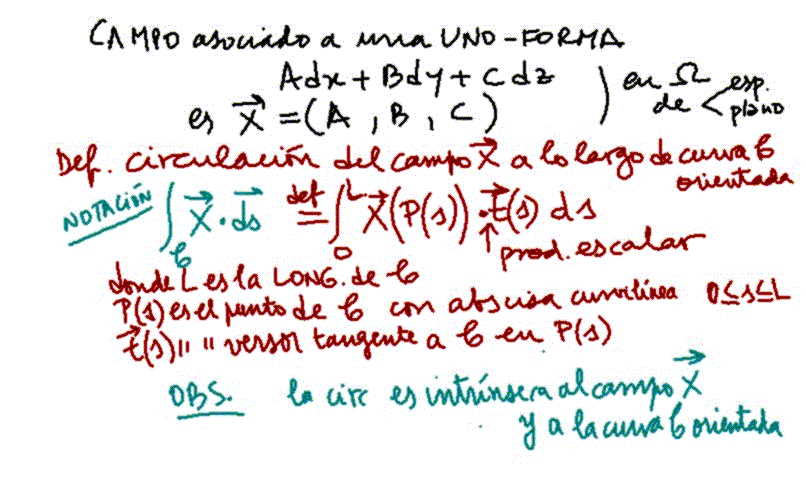 CAMPO asociado a una UNO-FORMA
Adx + Bdy + Cdz
es X⃗ = (A, B, C) ) en Ω de < esp. plano
Def. circulación del campo X⃗ a lo largo de curva C
orientada
NOTACIÓN ∫_C X⃗ · d⃗s def= ∫_0^L X⃗(P(s)) · t⃗(s) ds
↑ prod. escalar
donde L es la LONG. de C
P(s) es el punto de C con abscisa curvilínea 0≤s≤L
t⃗(s) " " versor tangente a C en P(s)
OBS. la circ es intrínseca al campo X⃗
y a la curva C orientada